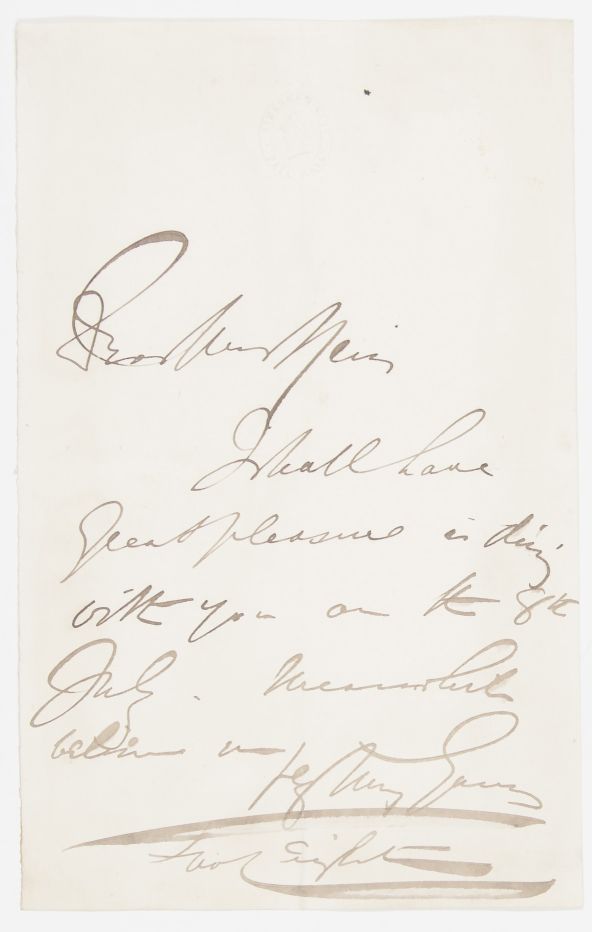 Dear Mrs
I shall have
great pleasure in dining
with you on the 8th
July. Meanwhile
believe me
Very Yours